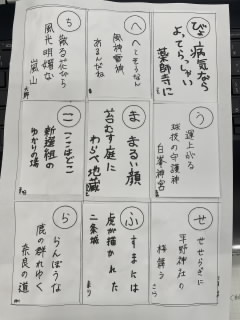 びょ
病気なら
よってらっしゃい
薬師寺に
へ
へーそうなん
風神雷神
あるんだね
ち
散る花なら
風光明媚な
嵐山
う
運上がる
球技の守護神
白峯神宮
ま
まるい顔
苔むす庭に
わらべ地蔵
こ
ここはどこ
新選組の
ゆかりの場
せ
せせらぎに
平野神社の
桜舞う
ふ
ふすまには
虎が描かれた
二条城
ら
らんぼうな
鹿の群れゆく
奈良の道